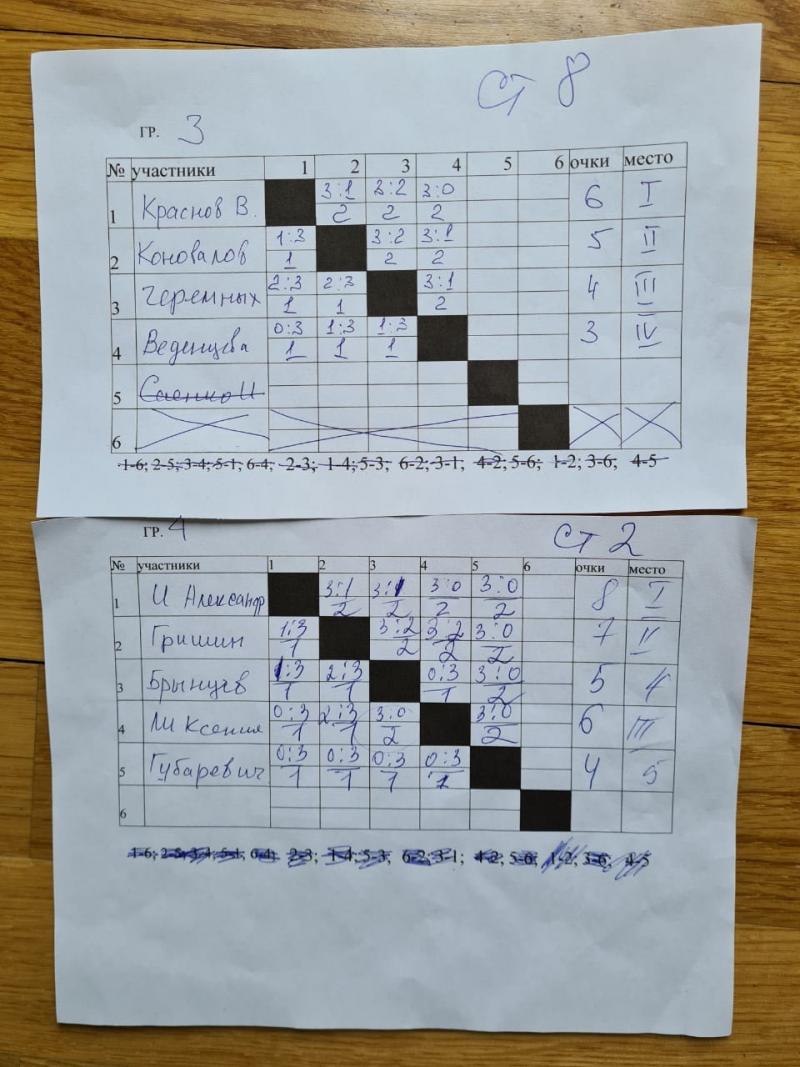 СТ 8
ГР. 3
№ участники 1 2 3 4 5 6 очки место
1 Краснов В. 3:1 3:2 3:0 6 I
2 2 2
2 Коновалов 1:3 3:2 3:1 5 II
1 2 2
3 Черемных 2:3 2:3 3:1 4 III
1 1 2
4 Веденцева 0:3 1:3 1:3 3 IV
1 1 1
5 Саенко И
6
1-6; 2-5; 3-4; 5-1; 6-4; 2-3; 1-4; 5-3; 6-2; 3-1; 4-2; 5-6; 1-2; 3-6; 4-5
ГР. 4 СТ 2
№ участники 1 2 3 4 5 6 очки место
1 И Александр 3:1 3:1 3:0 3:0 8 I
2 2 2 2
2 Гришин 1:3 3:2 3:2 3:0 7 II
1 2 2 2
3 Брынцев 1:3 2:3 0:3 3:0 5 4
1 1 1 2
4 Ш Ксения 0:3 2:3 3:0 3:0 6 III
1 1 2 2
5 Губаревич 0:3 0:3 0:3 0:3 4 5
1 1 1 1
6
1-6; 2-5; 3-4; 5-1; 6-4; 2-3; 1-4; 5-3; 6-2; 3-1; 4-2; 5-6; 1-2; 3-6; 4-5